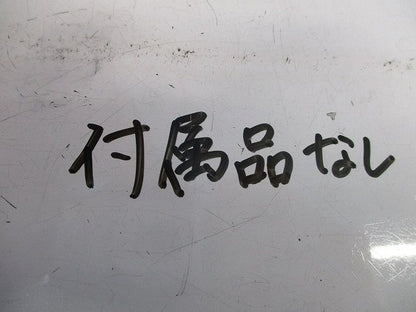 付属品なし